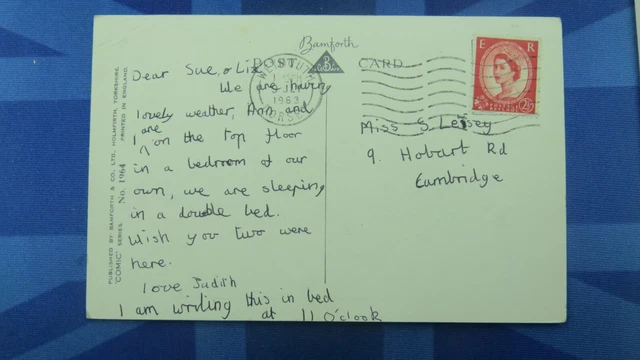 Bamforth
POST CARD
Dear Sue, & Liz
We are having
lovely weather, Ann and
I are on the top floor
in a bedroom of our
own, we are sleeping
in a double bed.
Wish you two were
here.
love Judith
I am writing this in bed
at 11 O'clock
WEYMOUTH
1963
DORSET
E R
2½D
Miss S. Lelsey
9. Hobart Rd
Cambridge
PUBLISHED BY BAMFORTH & CO., LTD., HOLMFIRTH, YORKSHIRE.
"COMIC" SERIES No. 1964 PRINTED IN ENGLAND.